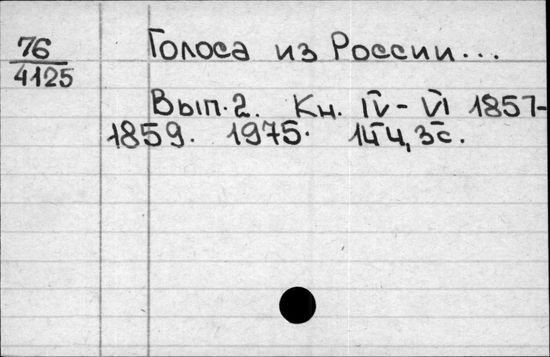 76
4125
Голоса из России...
Вып. 2. Кн. IV - VI 1857-
1859. 1975.